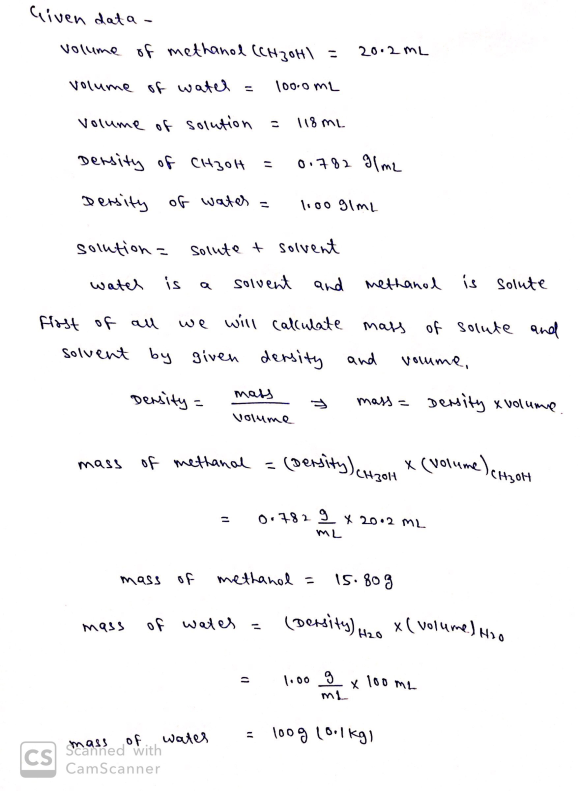 Given data -
volume of methanol (CH3OH) = 20.2 mL
volume of water = 100.0 mL
volume of solution = 118 mL
Density of CH3OH = 0.782 g/mL
Density of water = 1.00 g/mL
solution = solute + solvent
water is a solvent and methanol is solute
First of all we will calculate mass of solute and
solvent by given density and volume,
Density = mass / volume ⇒ mass = Density x volume.
mass of methanol = (Density)CH3OH x (volume)CH3OH
= 0.782 g/mL x 20.2 mL
mass of methanol = 15.80 g
mass of water = (Density)H2O x (volume)H2O
= 1.00 g/mL x 100 mL
mass of water = 100 g (0.1 kg)
CS Scanned with
CamScanner